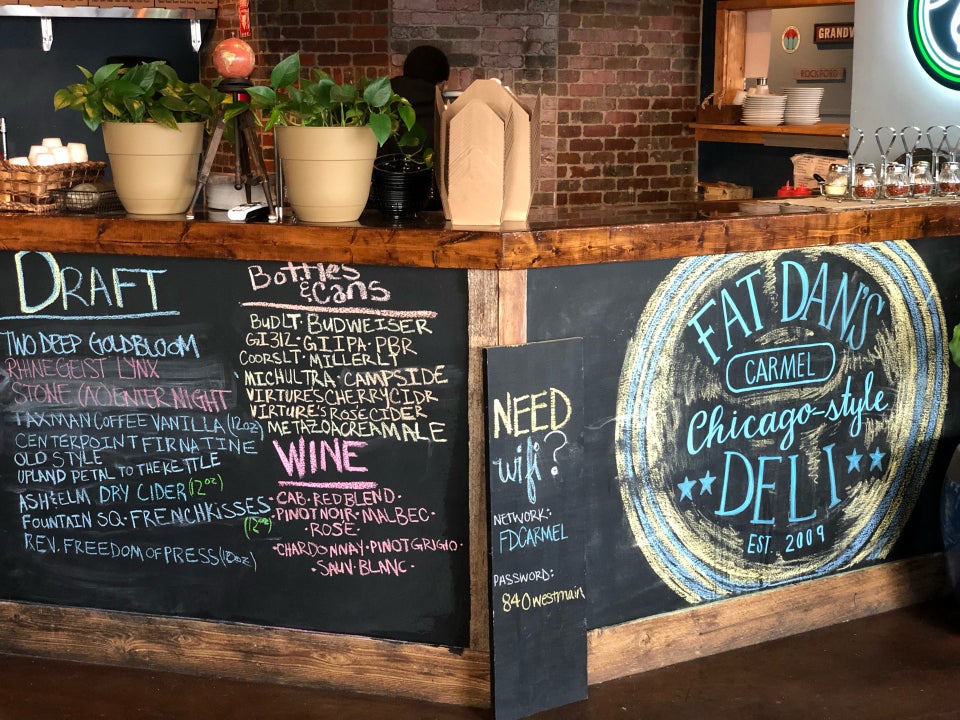 DRAFT
TWO DEEP GOLDBLOOM
RHINEGEIST LYNX
STONE (A)CENTER NIGHT
TAXMAN COFFEE VANILLA (12oz)
CENTERPOINT FIRNATINE
OLD STYLE
UPLAND PETAL TO THE KETTLE
ASH & ELM DRY CIDER (12oz)
FOUNTAIN SQ. FRENCH KISSES
(12oz)
REV. FREEDOM OF PRESS (10oz)
Bottles
& Cans
BUD LT · BUDWEISER
GI312 · GI IPA · PBR
COORS LT · MILLER LT
MICH ULTRA · CAMPSIDE
VIRTUE'S CHERRY CIDR
VIRTURE'S ROSE CIDER
METAZOA CREAM ALE
WINE
CAB · RED BLEND ·
PINOT NOIR · MALBEC ·
· ROSE ·
· CHARDONNAY · PINOT GRIGIO ·
· SAUV · BLANC ·
NEED
wifi?
NETWORK:
FDCARMEL
PASSWORD:
840westmain
FAT DAN'S
CARMEL
Chicago-style
DELI
EST. 2009
GRANDV
ROCKFORD